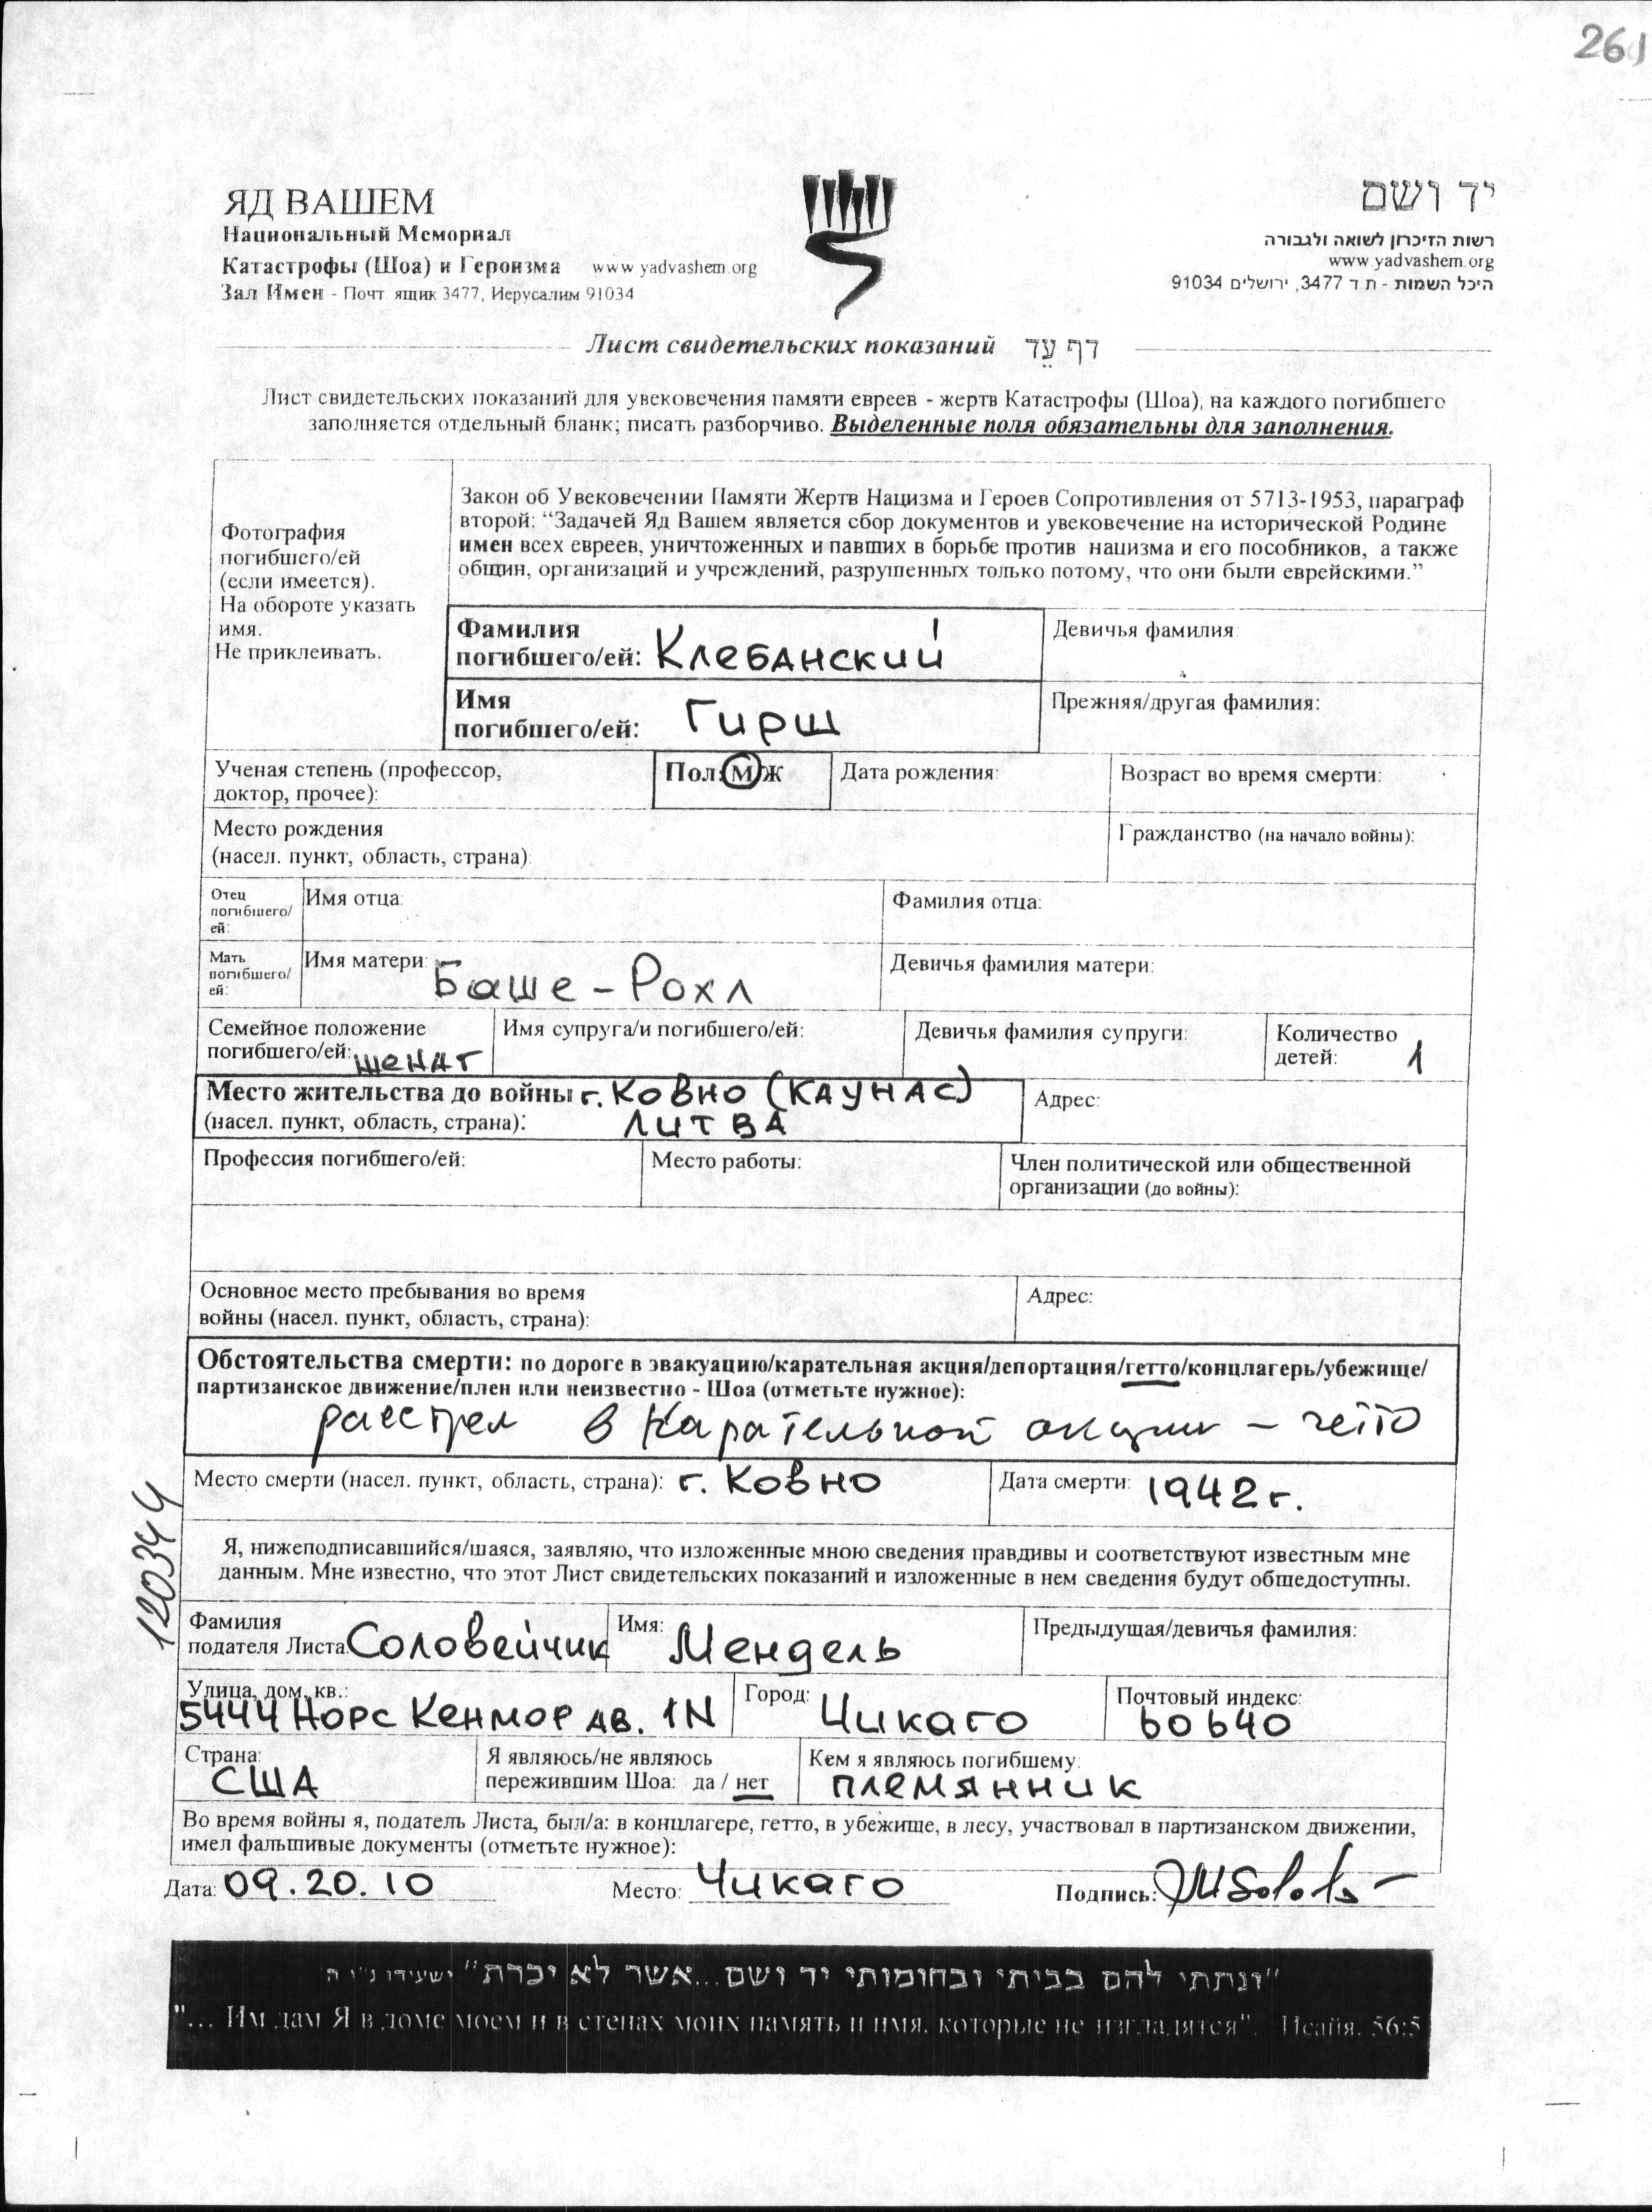 261
ЯД ВАШЕМ
Национальный Мемориал
Катастрофы (Шоа) и Героизма www.yadvashem.org
Зал Имен - Почт. ящик 3477, Иерусалим 91034
יד ושם
רשות הזיכרון לשואה ולגבורה
www.yadvashem.org
היכל השמות - ת ד 3477, ירושלים 91034
Лист свидетельских показаний דף עֵד
Лист свидетельских показаний для увековечения памяти евреев - жертв Катастрофы (Шоа), на каждого погибшего
заполняется отдельный бланк; писать разборчиво. Выделенные поля обязательны для заполнения.
Фотография
погибшего/ей
(если имеется).
На обороте указать
имя.
Не приклеивать.
Закон об Увековечении Памяти Жертв Нацизма и Героев Сопротивления от 5713-1953, параграф
второй: “Задачей Яд Вашем является сбор документов и увековечение на исторической Родине
имен всех евреев, уничтоженных и павших в борьбе против нацизма и его пособников, а также
общин, организаций и учреждений, разрушенных только потому, что они были еврейскими.”
Фамилия
погибшего/ей: Клебанский
Девичья фамилия:
Имя
погибшего/ей: Гирш
Прежняя/другая фамилия:
Ученая степень (профессор,
доктор, прочее):
Пол: М Ж
Дата рождения:
Возраст во время смерти:
Место рождения
(насел. пункт, область, страна):
Гражданство (на начало войны):
Отец
погибшего/
ей:
Имя отца:
Фамилия отца:
Мать
погибшего/
ей:
Имя матери: Баше - Рохл
Девичья фамилия матери:
Семейное положение
погибшего/ей: женат
Имя супруга/и погибшего/ей:
Девичья фамилия супруги:
Количество
детей: 1
Место жительства до войны г. Ковно (Каунас)
(насел. пункт, область, страна): Литва
Адрес:
Профессия погибшего/ей:
Место работы:
Член политической или общественной
организации (до войны):
Основное место пребывания во время
войны (насел. пункт, область, страна):
Адрес:
Обстоятельства смерти: по дороге в эвакуацию/карательная акция/депортация/гетто/концлагерь/убежище/
партизанское движение/плен или неизвестно - Шоа (отметьте нужное):
расстрел в карательной акции - гетто
Место смерти (насел. пункт, область, страна): г. Ковно
Дата смерти: 1942г.
120344
Я, нижеподписавшийся/шаяся, заявляю, что изложенные мною сведения правдивы и соответствуют известным мне
данным. Мне известно, что этот Лист свидетельских показаний и изложенные в нем сведения будут общедоступны.
Фамилия
подателя Листа: Соловейчик
Имя: Мендель
Предыдущая/девичья фамилия:
Улица, дом, кв.:
5444 Норс Кенмор ав. 1N
Город: Чикаго
Почтовый индекс:
60640
Страна:
США
Я являюсь/не являюсь
пережившим Шоа: да / нет
Кем я являюсь погибшему:
племянник
Во время войны я, податель Листа, был/а: в концлагере, гетто, в убежище, в лесу, участвовал в партизанском движении,
имел фальшивые документы (отметьте нужное):
Дата: 09.20.10 Место: Чикаго Подпись:
"ונתתי להם בביתי ובחומותי יד ושם...אשר לא יכרת" ישעיהו נ"ו ה
"... Им дам Я в доме моем и в стенах моих память и имя, которые не изгладятся". Исайя, 56:5